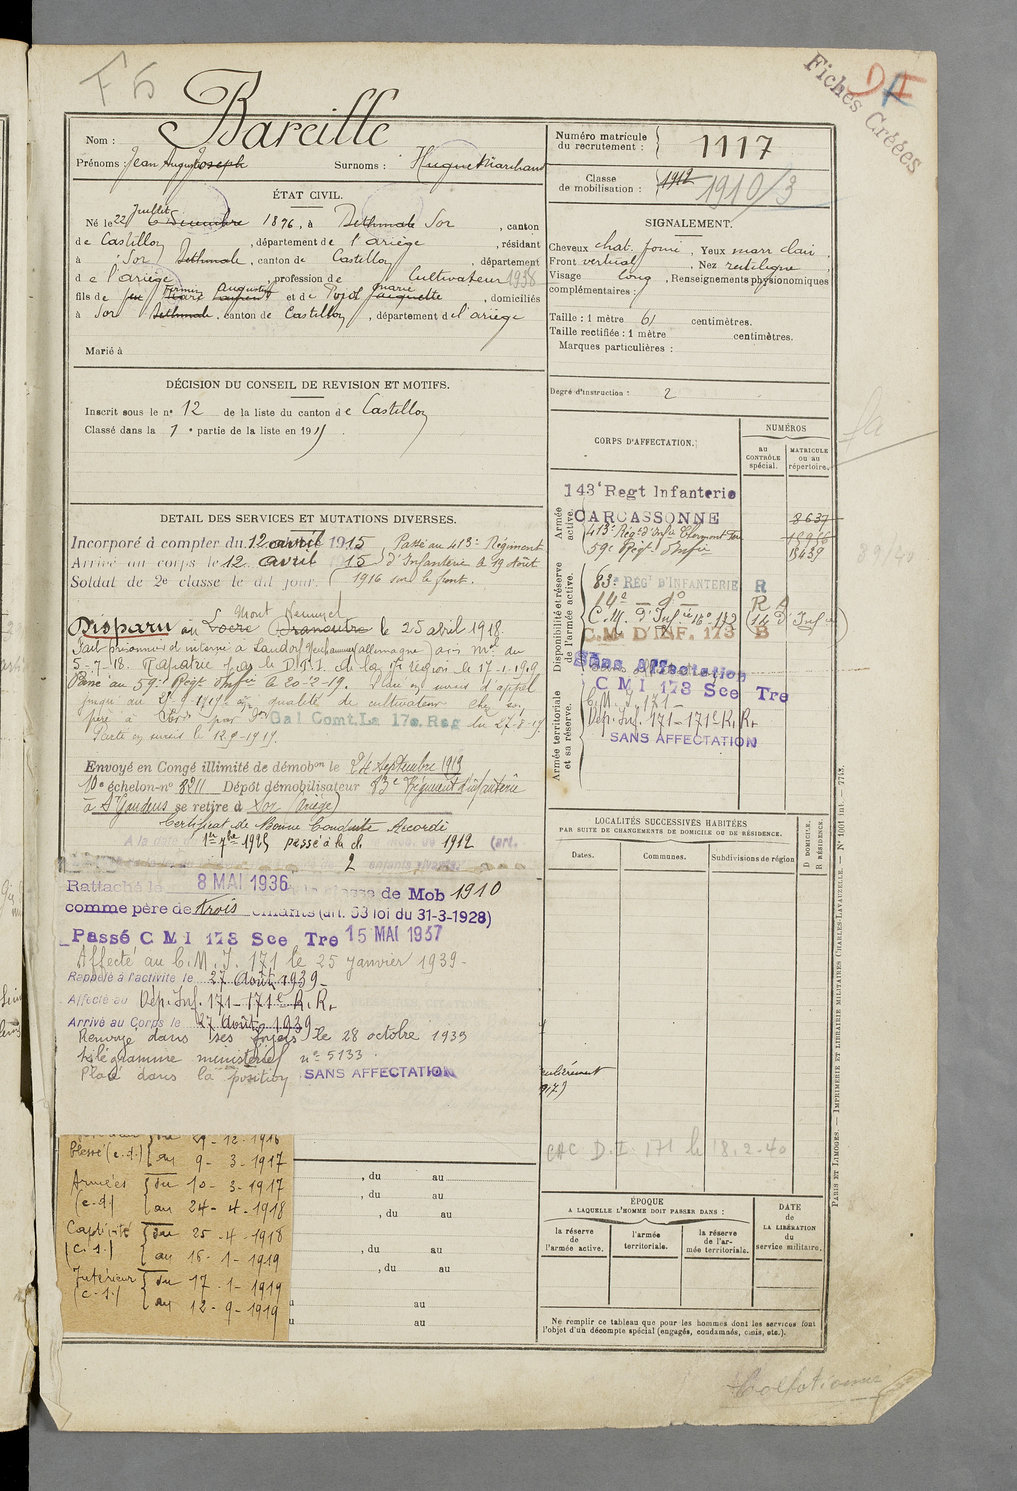 F 5
Fiches Créées
DF
Nom : Bareille
Prénoms : Jean August Joseph Surnoms : Hugue Marchand
Numéro matricule du recrutement : 1117
Classe de mobilisation : 1912 1910/3
ÉTAT CIVIL.
Juillet
Né le 22 6 Décembre 1896, à Bethmale Sor, canton
de Castillon, département de l'ariège, résidant
à Sor Bethmale, canton de Castillon, département
d e l'ariège, profession de Cultivateur 1938
Firmin Augustin marie
fils de feu Marc Laurent et de Pujol Jacquette, domiciliés
à Sor Bethmale, canton de Castillon, département de l'ariège
Marié à
SIGNALEMENT.
Cheveux chat. foncé, Yeux marr clair,
Front vertical, Nez rectiligne,
Visage long, Renseignements physionomiques
complémentaires :
Taille : 1 mètre 61 centimètres.
Taille rectifiée : 1 mètre centimètres.
Marques particulières :
Degré d'instruction : 2
DÉCISION DU CONSEIL DE REVISION ET MOTIFS.
Inscrit sous le n° 12 de la liste du canton de Castillon
Classé dans la 1 e partie de la liste en 1915
DÉTAIL DES SERVICES ET MUTATIONS DIVERSES.
Incorporé à compter du 12 avril 1915 Passé au 413e Régiment
Arrivé au corps le 12 avril 1915 d'Infanterie le 19 Août
Soldat de 2e classe le dit jour. 1916 sur le front.
Mont Kemmel
Disparu au Locre Dranoutre le 25 avril 1918.
Fait prisonnier et interné à Landorf allemagne avis ml du
5-7-18. Rapatrié par le D.T.I. de la 17e Région le 17-1-1919
Passé au 59e Régt d'Infie le 20-2-19. Mis en sursis d'appel
jusqu'au 21-9-1919 en qualité de cultivateur chez son
père à Sor par Gal Comt. La 17e. Reg du 27-8-19.
Sorti en sursis le 12-9-1919.
Envoyé en Congé illimité de démobon le 24 Septembre 1919
10e échelon-n° 8211 Dépôt démobilisateur 83e Régiment d'infanterie
à St Gaudens se retire à Sor (Ariège)
Certificat de Bonne Conduite Accordé
A la date du 1er 7bre 1925 passé à la cl. de Mob. de 1912 (art.
2 enfants vivants
Rattaché le 8 MAI 1936 à la classe de Mob 1910
comme père de trois enfants (art. 53 loi du 31-3-1928)
Passé C M I 173 Sce Tre 15 MAI 1937
Affecté au C.M.I. 171 le 25 janvier 1939-
Rappelé à l'activité le 27 Août 1939-
Affecté au Dép. Inf. 171-171e R.R.
Arrivé au Corps le 27 Août 1939
Renvoyé dans ses foyers le 28 octobre 1939
télégramme ministériel n° 5133
Placé dans la position SANS AFFECTATION
du 29-12-1916
Blessé (c.d.) au 9-3-1917
Armées du 10-3-1917
(c.d) au 24-4-1918
Captivité du 25-4-1918
(c.s.) au 16-1-1919
Intérieur du 17-1-1919
(c.s.) au 12-9-1919
, du au
, du au
, du au
, du au
, du au
u au
u au
CORPS D'AFFECTATION.
NUMÉROS
au CONTRÔLE spécial.
MATRICULE ou au répertoire.
Armée active.
143e Regt Infanterie
CARCASSONNE 8637
413e Régt d'Infie Clermont Fer
59e Régt d'Infie 13439
Disponibilité et réserve de l'armée active.
83e RÉGt D'INFANTERIE R
14e — do — R A
C.M. d'Infie no 173 (14 d'Inf)
C.M. D'INF. 173 B
Sans Affectation
Armée territoriale et sa réserve.
C M I 173 Sce Tre
C.M.I. 171-
Dép. Inf. 171-171e R.R.
SANS AFFECTATION
89/40
LOCALITÉS SUCCESSIVES HABITÉES
PAR SUITE DE CHANGEMENTS DE DOMICILE OU DE RÉSIDENCE.
Dates.
Communes.
Subdivisions de région
D DOMICILE.
R RÉSIDENCE.
CAC D.I. 171 le 18-2-40
ÉPOQUE
A LAQUELLE L'HOMME DOIT PASSER DANS :
la réserve de l'armée active.
l'armée territoriale.
la réserve de l'armée territoriale.
DATE de LA LIBÉRATION du service militaire.
Ne remplir ce tableau que pour les hommes dont les services font
l'objet d'un décompte spécial (engagés, condamnés, omis, etc.).
PARIS ET LIMOGES. — IMPRIMERIE ET LIBRAIRIE MILITAIRES CHARLES-LAVAUZELLE. — N° 1001 int. — 7713.